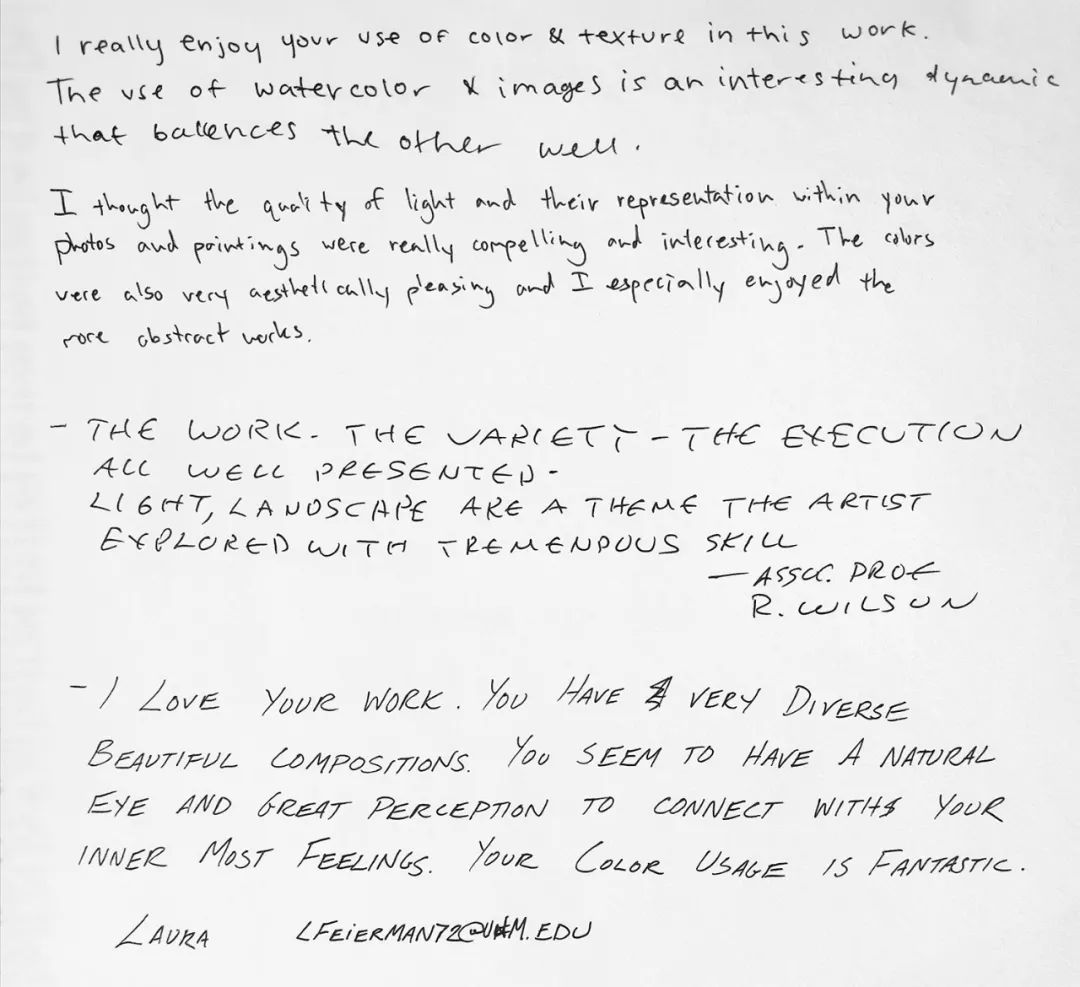 I really enjoy your use of color & texture in this work.
The use of watercolor & images is an interesting dynamic
that balences the other well.
I thought the quality of light and their representation within your
photos and paintings were really compelling and interesting. The colors
were also very aesthetically pleasing and I especially enjoyed the
more abstract works.
- THE WORK - THE VARIETY - THE EXECUTION
ALL WELL PRESENTED -
LIGHT, LANDSCAPE ARE A THEME THE ARTIST
EXPLORED WITH TREMENDOUS SKILL
- ASSOC. PROF
R. WILSON
- I LOVE YOUR WORK. YOU HAVE VERY DIVERSE
BEAUTIFUL COMPOSITIONS. YOU SEEM TO HAVE A NATURAL
EYE AND GREAT PERCEPTION TO CONNECT WITH YOUR
INNER MOST FEELINGS. YOUR COLOR USAGE IS FANTASTIC.
LAURA